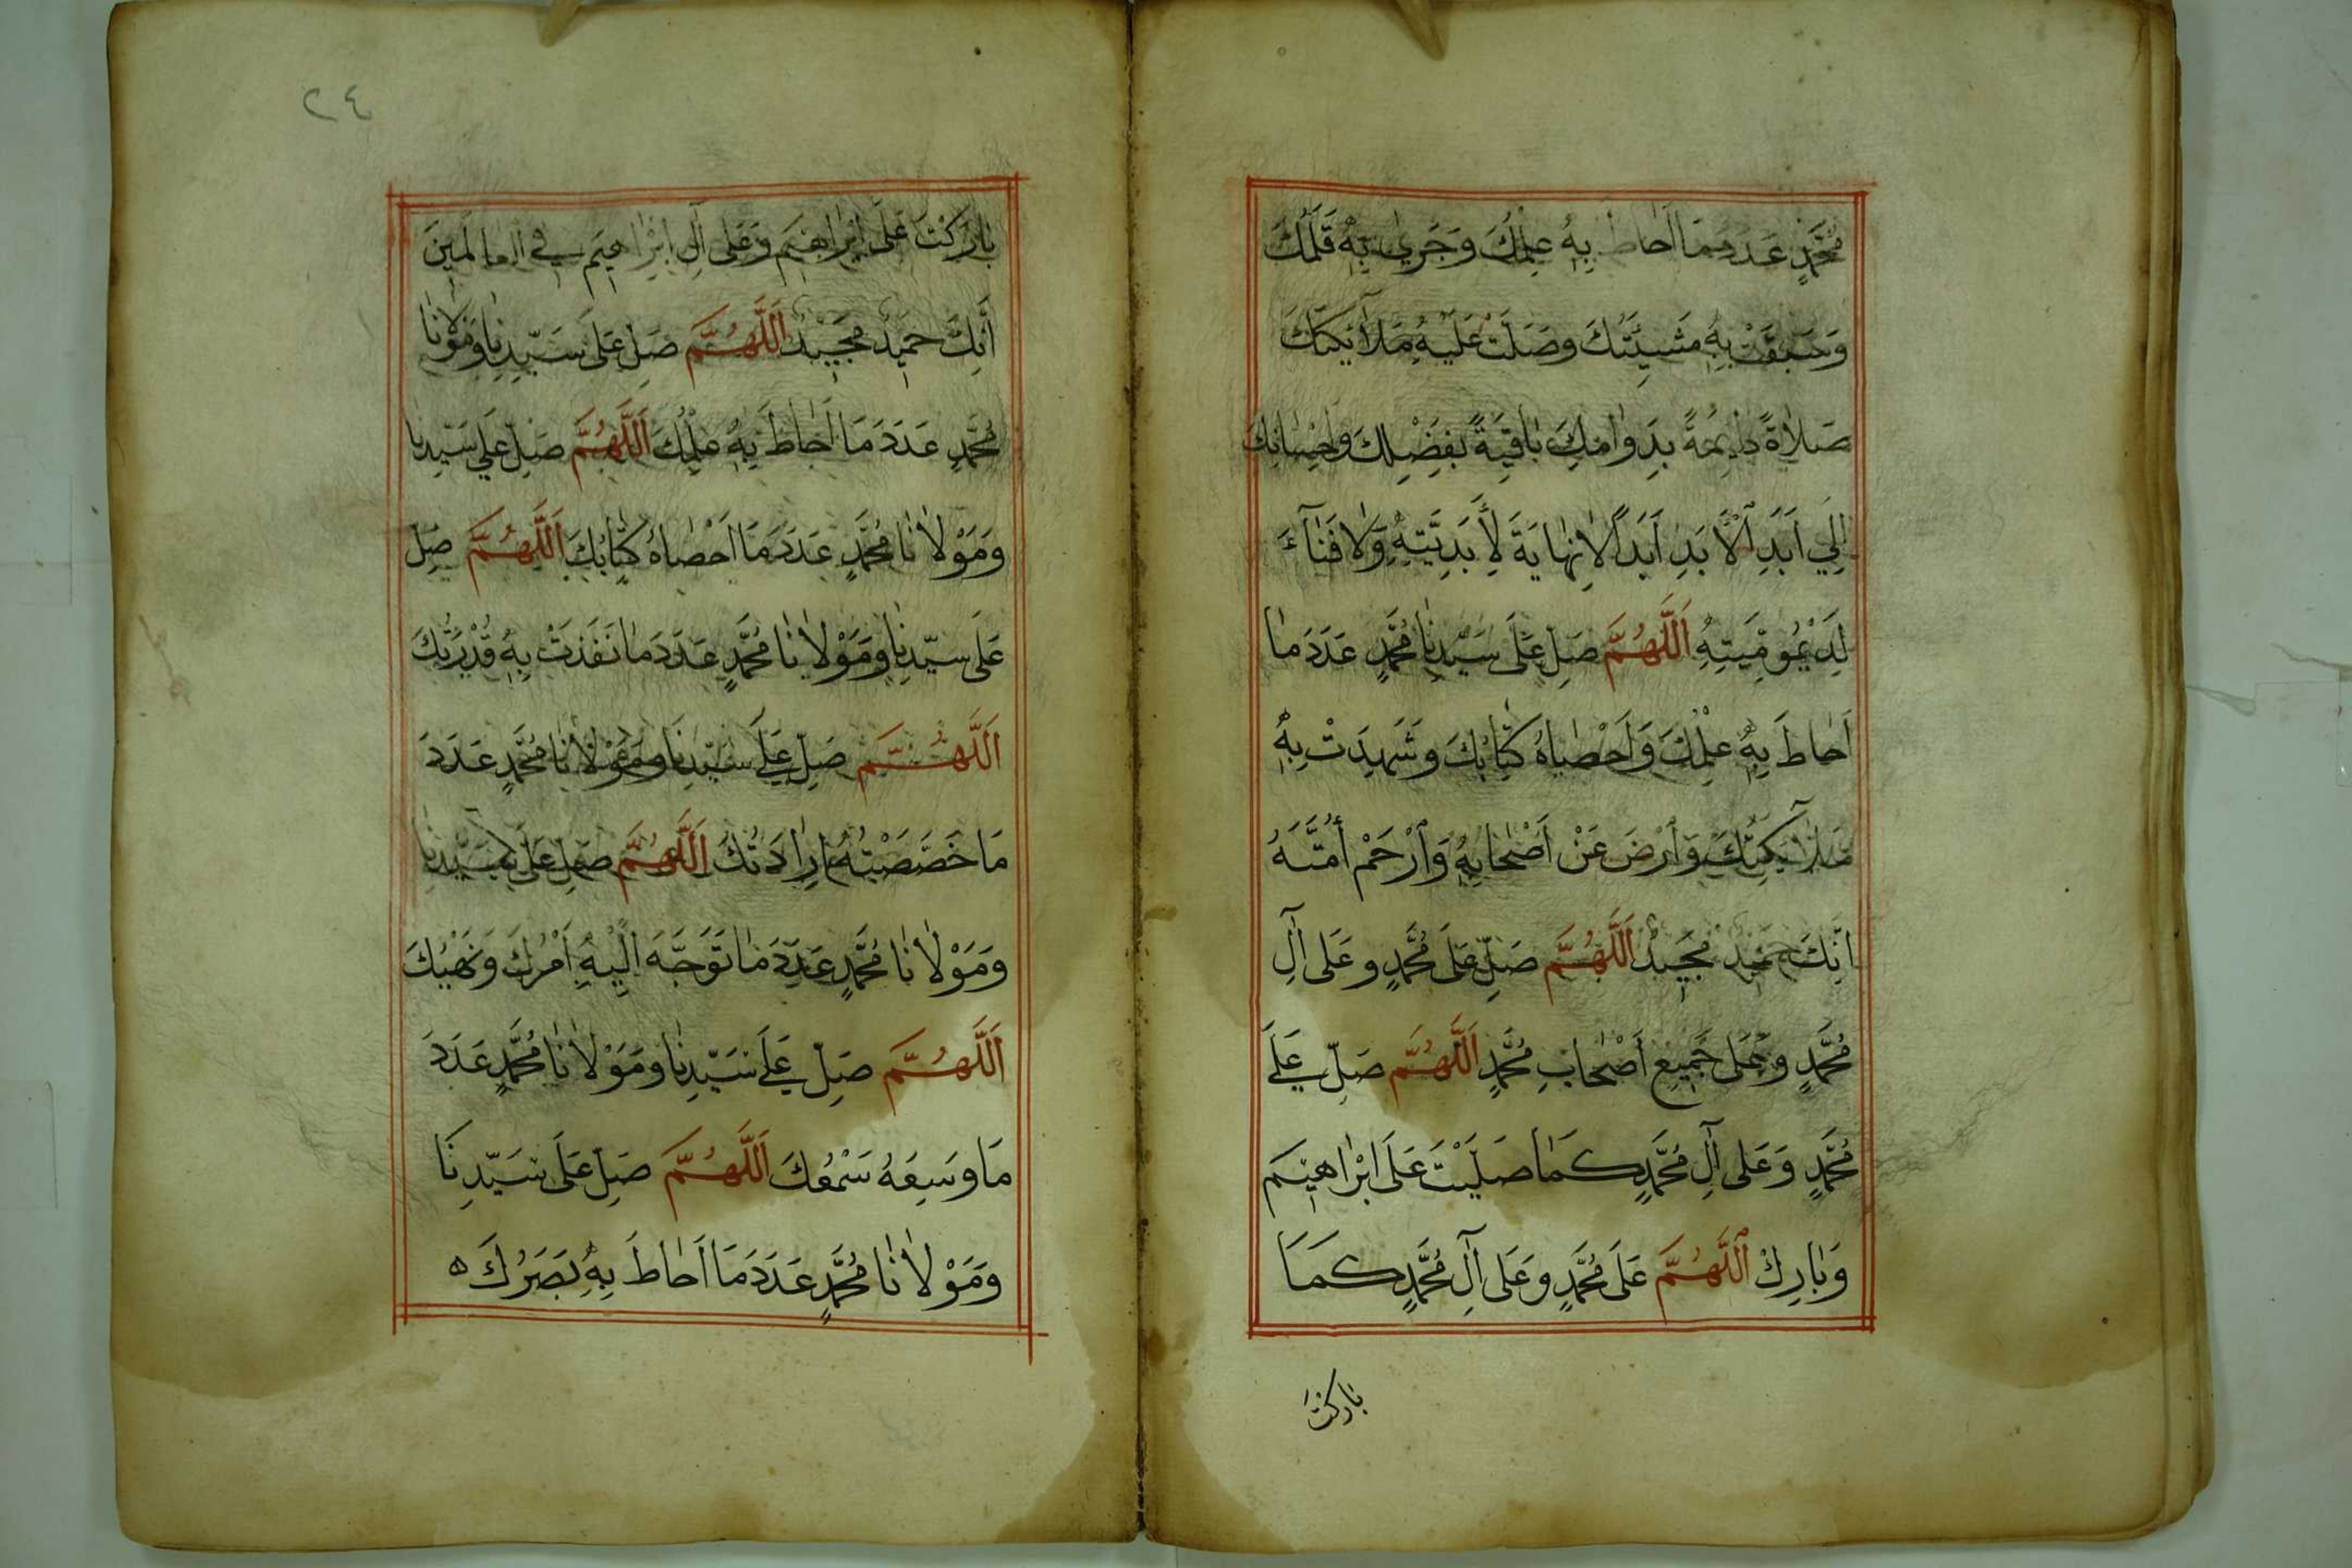 مُحَمَّدٍ عَدَدَ مَا اَحَاطَ بِهِ عِلْمُكَ وَجَرٰي بِهِ قَلَمُكَ
وَسَبَقَتْ بِهِ مَشِيَّتُكَ وَصَلَّتْ عَلَيْهِ مَلَآئِكَتُكَ
صَلَاةً دَائِمَةً بِدَوَامِكَ بَاقِيَةً بِفَضْلِكَ وَاِحْسَانِكَ
اِلٰي اَبَدِ الْاَبَدِ اَبَدًا لَانِهَايَةَ لِأَبَدِيَّتِهِ وَلَا فَنَآءَ
لِدَيْمُومِيَّتِهِ اَللَّهُمَّ صَلِّ عَلَى سَيِّدِنَا مُحَمَّدٍ عَدَدَ مَا
اَحَاطَ بِهِ عِلْمُكَ وَاَحْصَاهُ كِتَابُكَ وَشَهِدَتْ بِهِ
مَلَآئِكَتُكَ وَارْضَ عَنْ اَصْحَابِهِ وَارْحَمْ أُمَّتَهُ
اِنَّكَ حَمِيدٌ مَجِيدٌ اَللَّهُمَّ صَلِّ عَلَى مُحَمَّدٍ وَعَلَى اٰلِ
مُحَمَّدٍ وَعَلَى جَمِيعِ اَصْحَابِ مُحَمَّدٍ اَللَّهُمَّ صَلِّ عَلَے
مُحَمَّدٍ وَعَلَى اٰلِ مُحَمَّدٍ كَمَا صَلَّيْتَ عَلَى اِبْرَاهِيمَ
وَبَارِكْ اَللَّهُمَّ عَلَى مُحَمَّدٍ وَعَلَى اٰلِ مُحَمَّدٍ كَمَا
بَارَكْتَ
٢٤
بَارَكْتَ عَلَى اِبْرَاهِيمَ وَعَلَى اٰلِ اِبْرَاهِيمَ فِي الْعَالَمِينَ
أَنَّكَ حَمِيدٌ مَجِيدٌ اَللَّهُمَّ صَلِّ عَلَى سَيِّدِنَا وَمَوْلَانَا
مُحَمَّدٍ عَدَدَ مَا اَحَاطَ بِهِ عِلْمُكَ اَللَّهُمَّ صَلِّ عَلَي سَيِّدِنَا
وَمَوْلَانَا مُحَمَّدٍ عَدَدَ مَا اَحْصَاهُ كِتَابُكَ اَللَّهُمَّ صَلِّ
عَلَى سَيِّدِنَا وَمَوْلَانَا مُحَمَّدٍ عَدَدَ مَا نَفَذَتْ بِهِ قُدْرَتُكَ
اَللَّهُمَّ صَلِّ عَلَے سَيِّدِنَا وَمَوْلَانَا مُحَمَّدٍ عَدَدَ
مَا خَصَّصَتْهُ اِرَادَتُكَ اَللَّهُمَّ صَلِّ عَلَى سَيِّدِنَا
وَمَوْلَانَا مُحَمَّدٍ عَدَدَ مَا تَوَجَّهَ اِلَيْهِ اَمْرُكَ وَنَهْيُكَ
اَللَّهُمَّ صَلِّ عَلَے سَيِّدِنَا وَمَوْلَانَا مُحَمَّدٍ عَدَدَ
مَا وَسِعَهُ سَمْعُكَ اَللَّهُمَّ صَلِّ عَلَى سَيِّدِنَا
وَمَوْلَانَا مُحَمَّدٍ عَدَدَ مَا اَحَاطَ بِهِ بَصَرُكَ ه